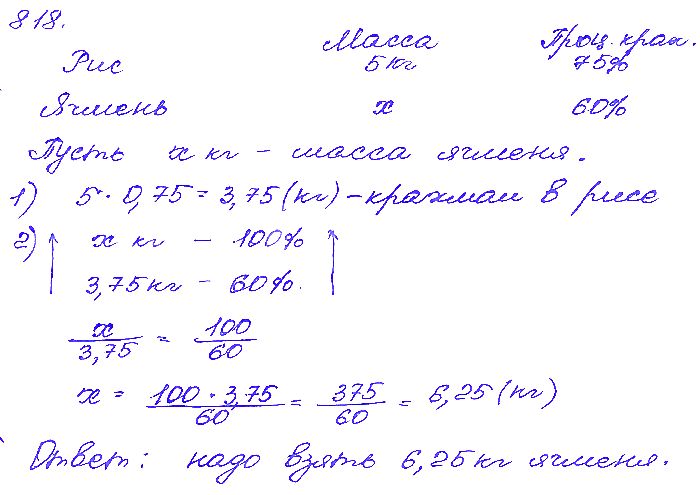 818.
Масса Проц. крах.
Рис 5 кг 75%
Ячмень x 60%
Пусть x кг - масса ячменя.
1) 5 · 0,75 = 3,75 (кг) - крахмал в рисе
2) x кг - 100%
3,75 кг - 60%.
x/3,75 = 100/60
x = 100 · 3,75/60 = 375/60 = 6,25 (кг)
Ответ: надо взять 6,25 кг ячменя.